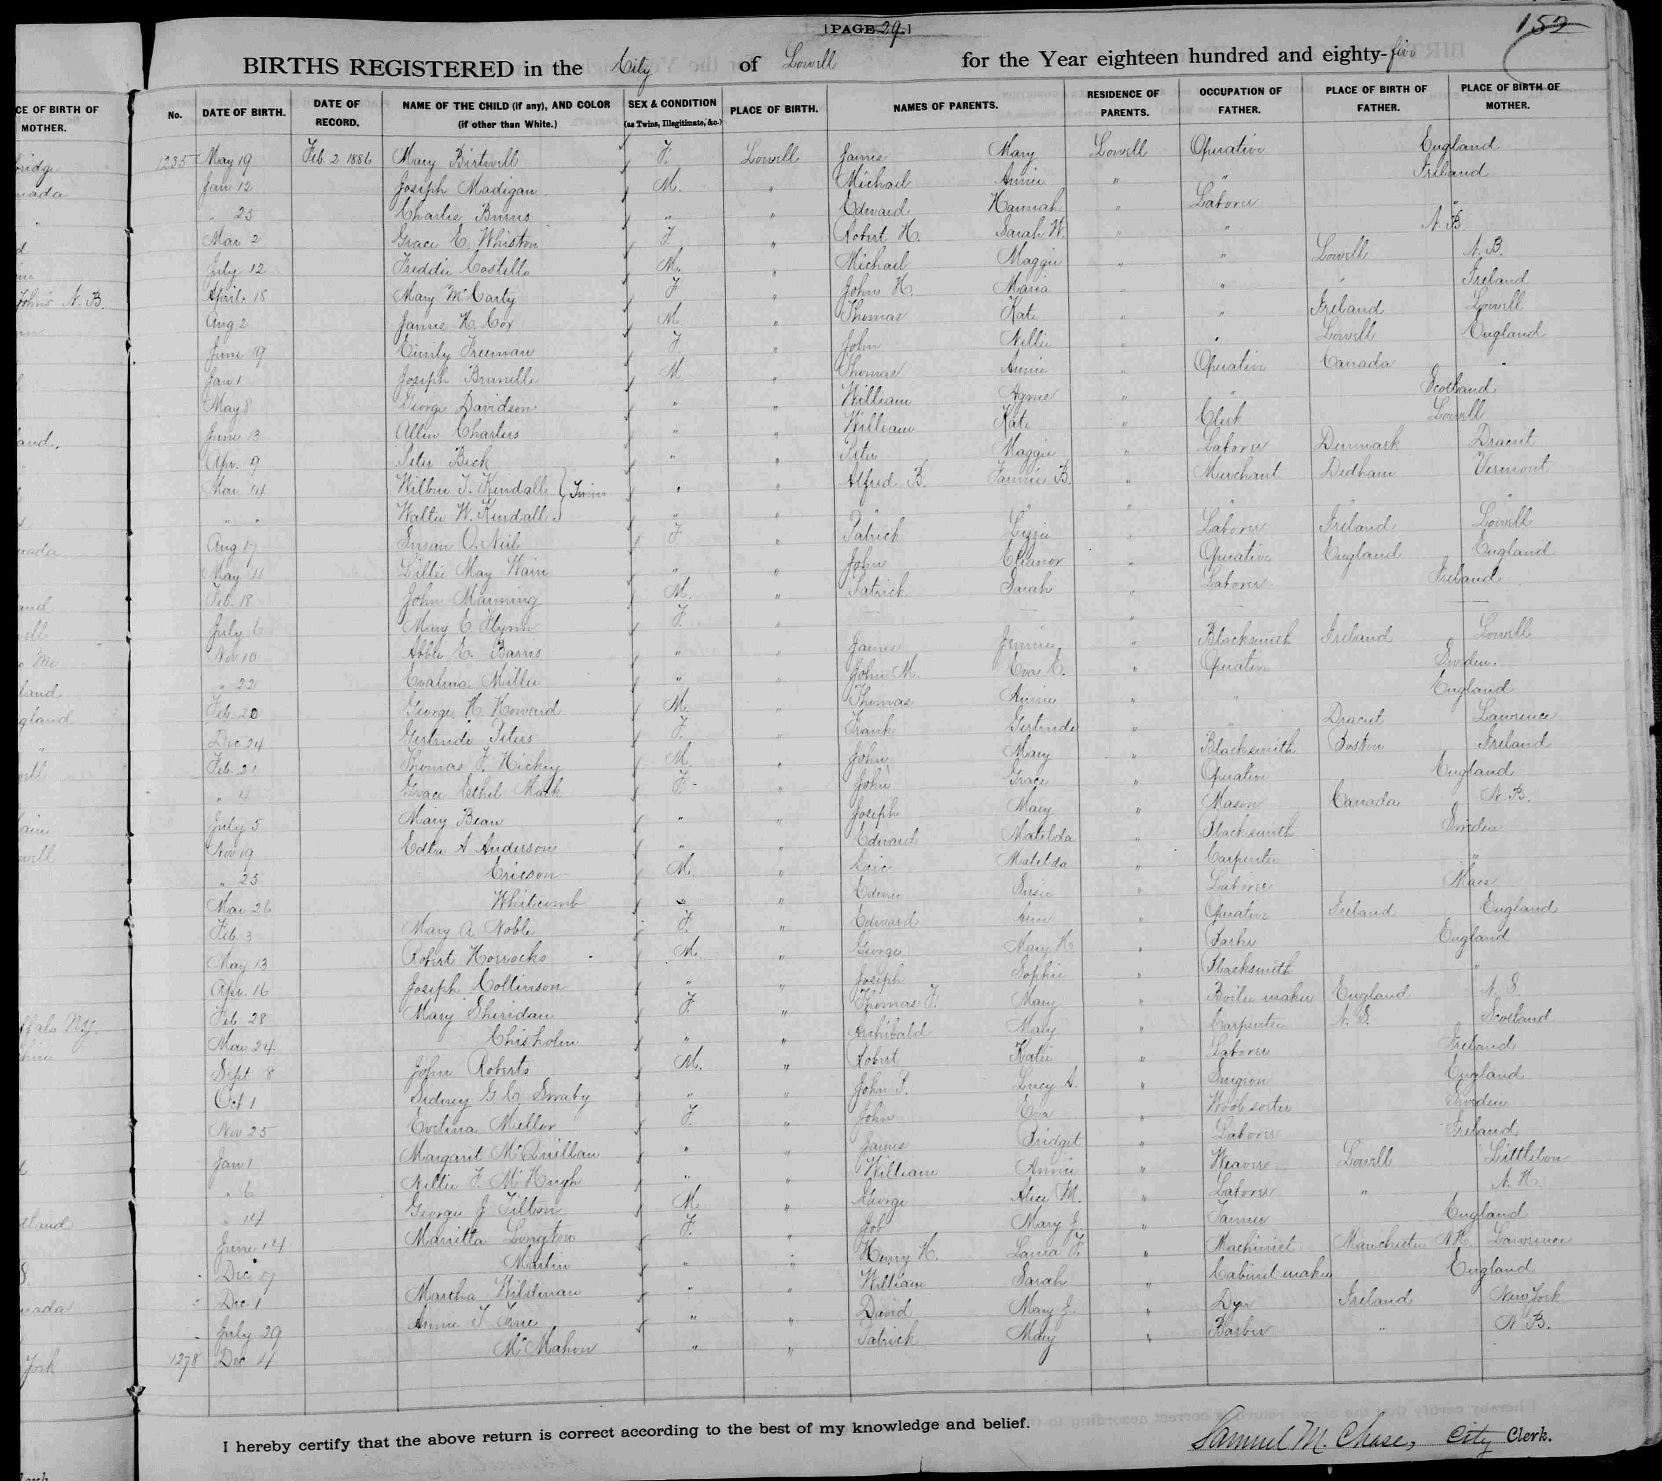 [PAGE 29.]
152
BIRTHS REGISTERED in the City of Lowell for the Year eighteen hundred and eighty-five
No. DATE OF BIRTH. DATE OF RECORD. NAME OF THE CHILD (if any), AND COLOR (if other than White.) SEX & CONDITION (as Twins, Illegitimate, &c.) PLACE OF BIRTH. NAMES OF PARENTS. RESIDENCE OF PARENTS. OCCUPATION OF FATHER. PLACE OF BIRTH OF FATHER. PLACE OF BIRTH OF MOTHER.
1235 May 19 Feb. 2 1886 Mary Birtwell F. Lowell James Mary Lowell Operative England
Jan 12 Joseph Madigan M. " Michael Annie " " Ireland
" 25 Charlie Burns " " Edward Hannah " Laborer "
Mar 2 Grace E. Whiston F. " Robert H. Sarah W. " " N. B
July 12 Freddie Costello M. " Michael Maggie " " Lowell N. B.
April 18 Mary McCarty F " John H. Maria " " " Ireland
Aug 2 James H. Cox M. " Thomas Kate " " Ireland Lowell
June 19 Emily Freeman F. " John Nellie " " Lowell England
Jan 1 Joseph Brunelle M " Thomas Annie " Operative Canada "
May 8 George Davidson " " William Agnes " " Scotland
June 13 Allen Charters " " William Kate " Clerk Lowell
Apr. 9 Peter Beck " " Peter Maggie " Laborer Denmark Dracut
Mar 14 Wilbur T. Kendall } Twins " " Alfred B. Fannie B. " Merchant Dedham Vermont
" " Walter W. Kendall } " " " " " " " "
Aug 17 Susan O. Neil F. " Patrick Lizzie " Laborer Ireland Lowell
May 4 Lillie May Wain " " John Eleanor " Operative England England
Feb. 18 John Manning M. " Patrick Sarah " Laborer Ireland
July 6 Mary E. Flynn F. " "
Nov 10 Abbie E. Barris " " James Jennie " Blacksmith Ireland Lowell
" 22 Evalina Miller " " John M. Eva C. " Operative Sweden.
Feb. 20 George H. Howard M. " Thomas Annie " " England
Dec 24 Gertrude Peters F. " Frank Gertrude " " Dracut Lawrence
Feb. 21 Thomas F. Hickey M. " John Mary " Blacksmith Boston Ireland
" 4 Grace Ethel Mark F. " John Grace " Operative England
July 5 Mary Bean " " Joseph Mary " Mason Canada N. B.
Nov 19 Edla A Anderson " " Edward Matilda " Blacksmith Sweden
" 23 Ericson M. " Eric Matilda " Carpenter "
Mar 26 Whitcomb " " Edwin Susie " Laborer Mass
Feb 3 Mary A. Noble F. " Edward Ann " Operative Ireland England
May 13 Robert Horrocks M. " George Mary H. " England
Apr. 16 Joseph Collinson " " Joseph Sophie " Blacksmith "
Feb 28 Mary Sheridan F. " Thomas F. Mary " Boiler maker England N. S.
Mar 24. Chisholm " " Archibald Mary " Carpenter N. S. Scotland
Sept 8 John Roberts M. " Robert Katie " Laborer Ireland
Oct 1 Sidney G. Swaby " " John P. Lucy A. " Surgeon England
Nov 25 Evelina Mellor F. " John Eva " Wool sorter Sweden
Jan 1 Margaret McQuillan " " James Bridget " Laborer Ireland
" 6 Nellie F. McHugh " " William Annie " Weaver Lowell Littleton
" 14 George J Tilton M. " George Alice M. " Laborer " N. H.
June 14 Marietta Longton F. " Job Mary J. " Tanner England
Dec 7 Martin " " Henry H. " Machinist Manchester N. H. Lawrence
Dec 1 Martha Wildman " " William Sarah " Cabinet maker England
July 29 Annie T. " " David Mary J. " Dyer Ireland New York
1278 Dec 4 McMahon " " Patrick Mary " Barber " N. B.
I hereby certify that the above return is correct according to the best of my knowledge and belief.
Samuel M. Chase, City Clerk.